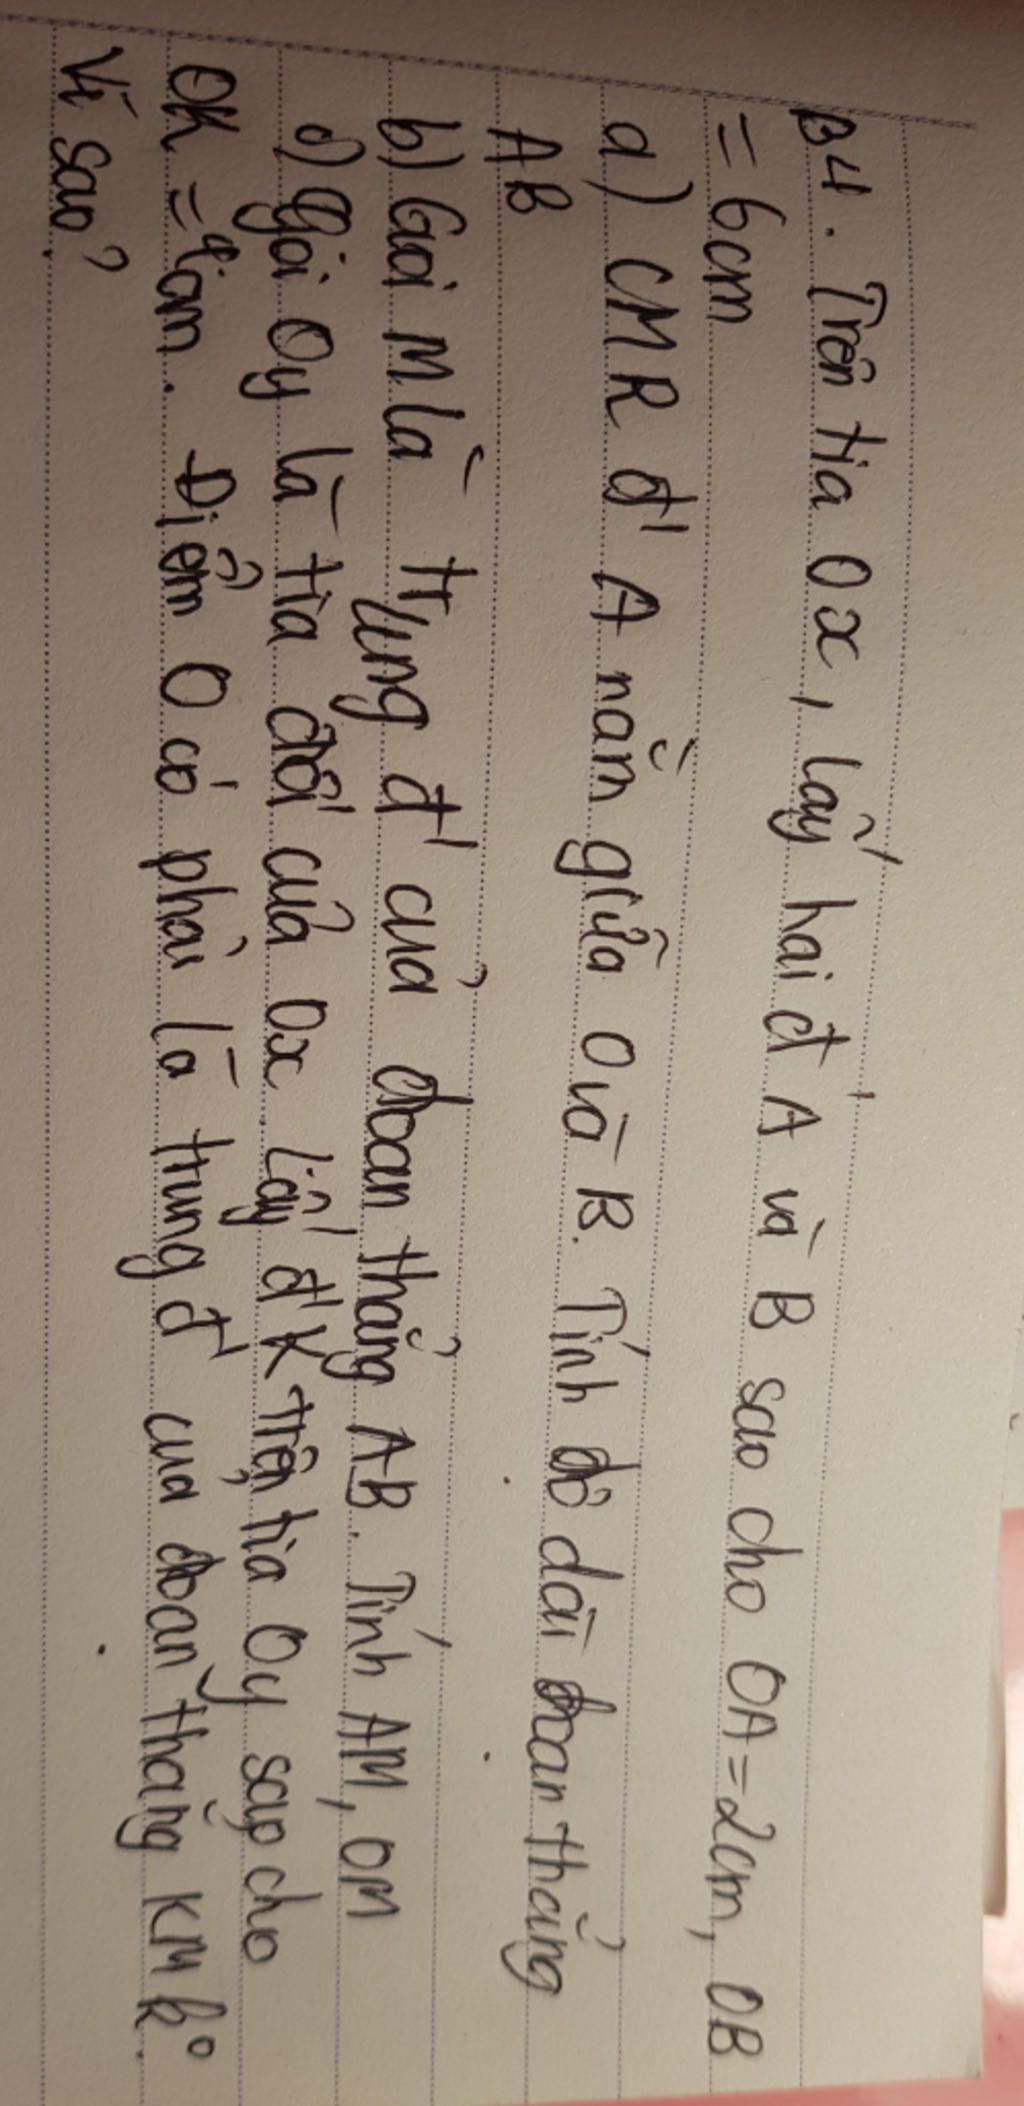 B4. Trên tia Ox, lấy hai đ' A và B sao cho OA = 2cm, OB
= 6cm
a) CMR đ' A nằm giữa O và B. Tính độ dài đoạn thẳng
AB
b) Gọi M là trung đ' của đoan thẳng AB. Tính AM, OM
c) Gọi Oy là tia đối của Ox. Lấy đ' K trên tia Oy sao cho
OK = 4cm. Điểm O có phải là trung đ' của đoan thẳng KM ko.
Vì sao?